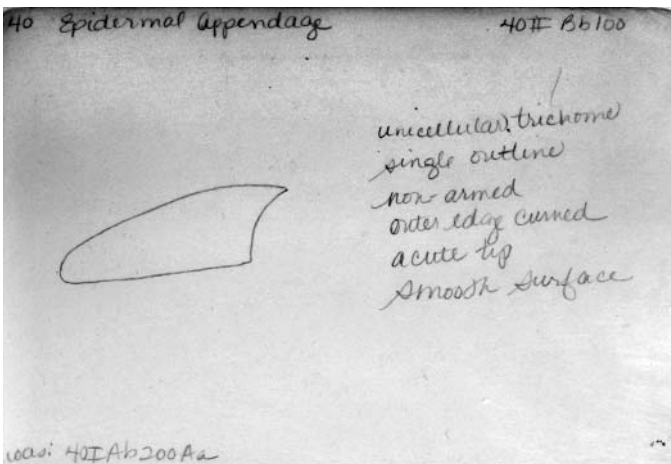 40 Epidermal Appendage 40II Bb100
unicellular trichome
single outline
non-armed
outer edge curved
acute tip
smooth surface
was: 40IAb200Aa